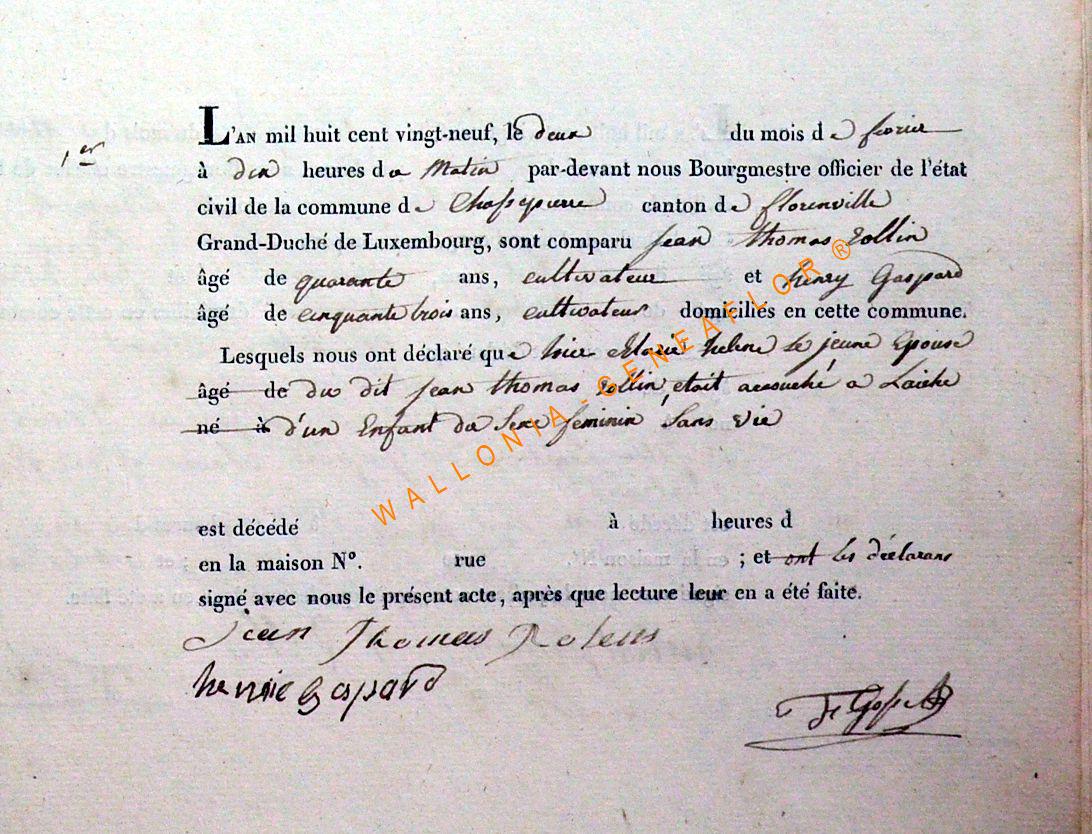 1er
L'AN mil huit cent vingt-neuf, le deux du mois de fevrier
à dix heures du Matin par-devant nous Bourgmestre officier de l'état
civil de la commune de Chassepierre canton de florenville
Grand-Duché de Luxembourg, sont comparu jean thomas rollin
âgé de quarante ans, cultivateur et henry Gaspard
âgé de cinquante trois ans, cultivateur domiciliés en cette commune.
Lesquels nous ont déclaré que Marie helene le jeune Epouse
âgé de du dit jean thomas rollin, etait accouché a Laiche
né à d'un Enfant du Sexe feminin Sans vie
est décédé à heures d
en la maison N°. rue ; et ont les déclarans
signé avec nous le présent acte, après que lecture leur en a été faite.
jean Thomas
henrie gaspard
WALLONIA-GENEAFLOR®